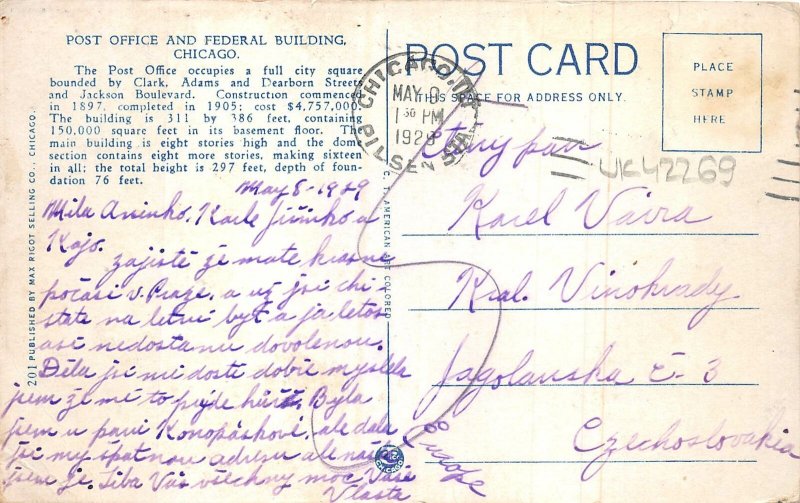 POST OFFICE AND FEDERAL BUILDING,
CHICAGO.
The Post Office occupies a full city square
bounded by Clark, Adams and Dearborn Streets
and Jackson Boulevard. Construction commenced
in 1897, completed in 1905; cost $4,757,000.
The building is 311 by 386 feet, containing
150,000 square feet in its basement floor. The
main building is eight stories high and the dome
section contains eight more stories, making sixteen
in all; the total height is 297 feet, depth of foun-
dation 76 feet.
May 8-1929
Milá Aninko, Karle Jiřinko a
Kajo.
zajisté že mate krasne
počasí v Praze, a už jsi chi
state na letní byt a ja letos
asi nedostanu dovolenou.
Děla jsi mi dosti dobře myslela
jsem že mi to pujde hůř. Byla
jsem u paní Konopáskové, ale dala
jsi my špatnou adresu ale našla
jsem je. Líba Vás všechny moc Vaše
Vlasta
201 PUBLISHED BY MAX RIGOT SELLING CO., CHICAGO.
C. T. AMERICAN ART COLORED
POST CARD
THIS SPACE FOR ADDRESS ONLY.
PLACE
STAMP
HERE
CHICAGO, ILL.
MAY 8
1 30 PM
1929
PILSEN STA.
UK42269
Ctěný pan
Karel Vávra
Král. Vinohrady
Jagolanska č-3
Czechoslovakia
Europe